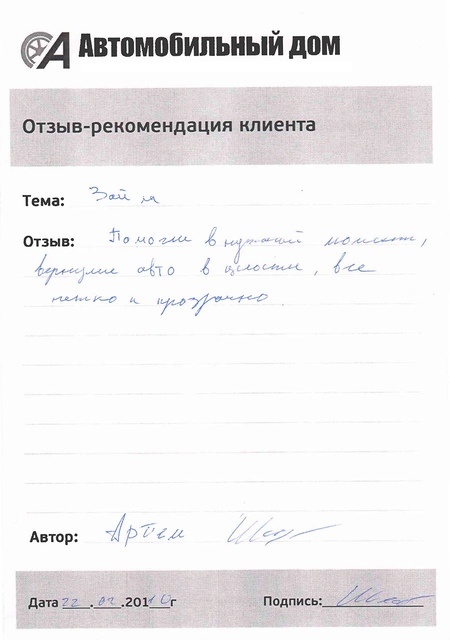 Автомобильный дом
Отзыв-рекомендация клиента
Тема: Займ
Отзыв: Помогли в нужный момент,
вернули авто в целости, все
четко и прозрачно.
Автор: Артем
Дата 22.02.2010г Подпись: